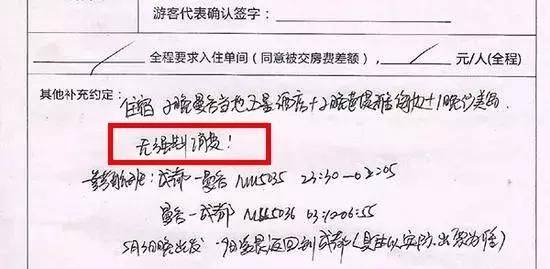 游客代表确认签字:
全程要求入住单间(同意被交房费差额), 元/人(全程)
其他补充约定:
住宿 2晚曼谷当地五星酒店+2晚芭提雅海边+1晚
无强制消费!
参考航班:成都—曼谷 23:30—02:05
曼谷—成都
5月3日晚出发 9日凌晨返回到成都(具体以实际出票为准)